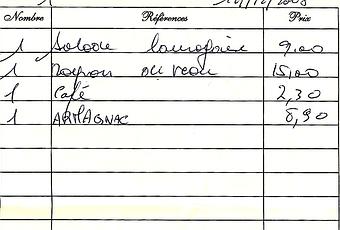 Nombre Références Prix
1 Salade landaise 9,00
1 Rognon de veau 15,00
1 Café 2,30
1 ARMAGNAC 6,90